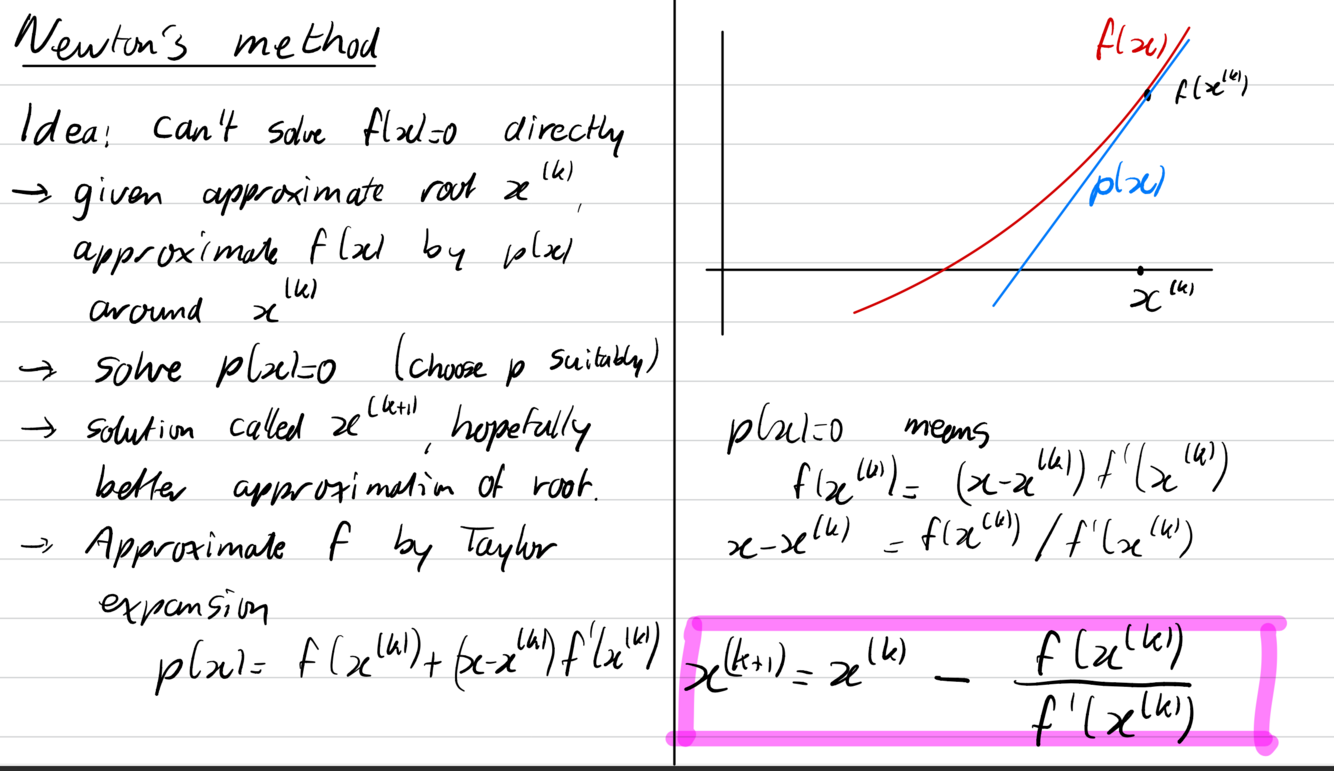 Newton's method
Idea: Can't solve f(x)=0 directly
→ given approximate root x^(k),
approximate f(x) by p(x)
around x^(k)
→ solve p(x)=0 (choose p suitably)
→ solution called x^(k+1), hopefully
better approximation of root.
→ Approximate f by Taylor
expansion
p(x)= f(x^(k))+(x-x^(k))f'(x^(k))
f(x)
f(x^(k))
p(x)
x^(k)
p(x)=0 means
f(x^(k))= (x-x^(k)) f'(x^(k))
x-x^(k) = f(x^(k)) / f'(x^(k))
x^(k+1) = x^(k) - f(x^(k)) / f'(x^(k))